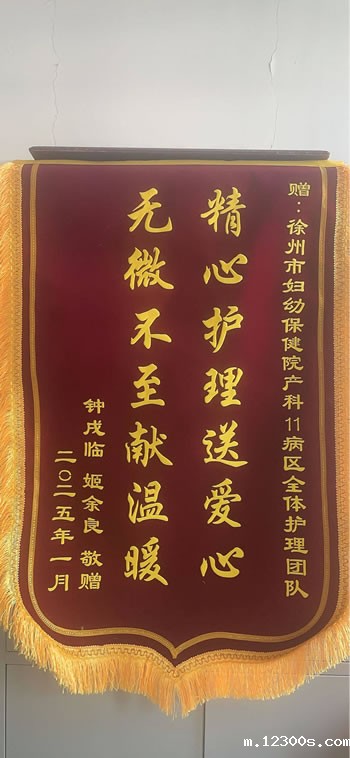 赠：徐州市妇幼保健院产科11病区全体护理团队
精心护理送爱心
无微不至献温暖
钟戌临 姬余良 敬赠
二〇二五年一月
m.12300s.com